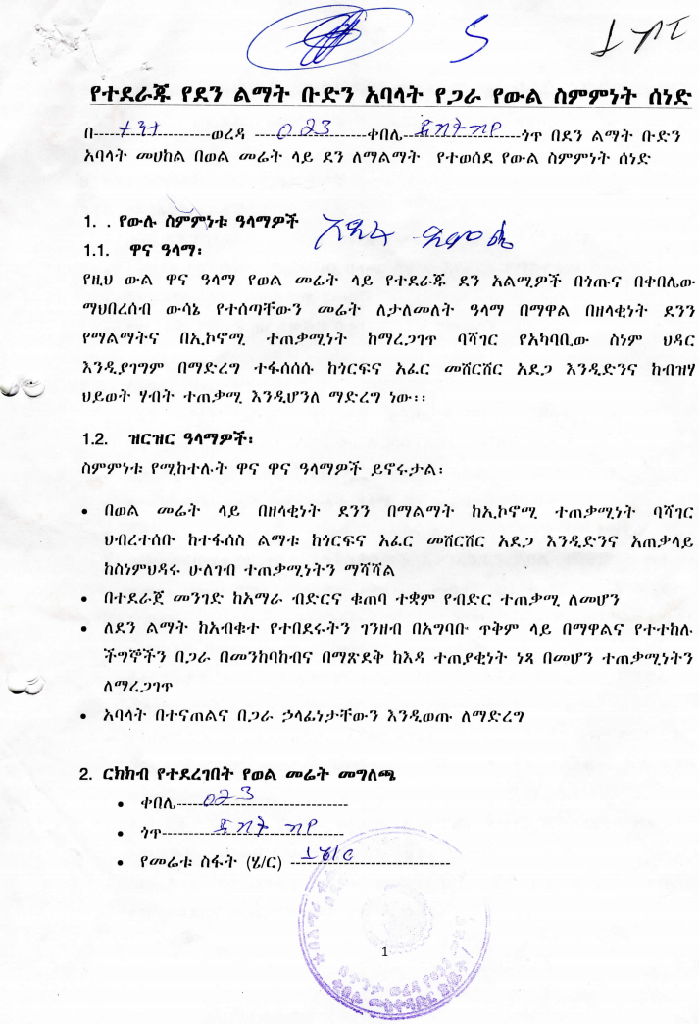 የተደራጁ የደን ልማት ቡድን አባላት የጋራ የውል ስምምነት ሰነድ
በ---------ወረዳ ----023----ቀበሌ------------ጎጥ በደን ልማት ቡድን
አባላት መሀከል በወል መሬት ላይ ደን ለማልማት የተወሰደ የውል ስምምነት ሰነድ
1. . የውሉ ስምምነቱ ዓላማዎች
1.1. ዋና ዓላማ፡
የዚህ ውል ዋና ዓላማ የወል መሬት ላይ የተደራጁ ደን አልሚዎች በጎጡና በቀበሌው
ማህበረሰብ ውሳኔ የተሰጣቸውን መሬት ለታለመለት ዓላማ በማዋል በዘላቂነት ደንን
የማልማትና በኢኮኖሚ ተጠቃሚነት ከማረጋገጥ ባሻገር የአካባቢው ስነም ህዳር
እንዲያገግም በማድረግ ተፋሰሰሱ ከጎርፍና አፈር መሸርሸር አደጋ እንዲድንና ከብዝሃ
ህይወት ሃብት ተጠቃሚ እንዲሆንለ ማድረግ ነው፡፡
1.2. ዝርዝር ዓላማዎች፡
ስምምነቱ የሚከተሉት ዋና ዋና ዓላማዎች ይኖሩታል፡
• በወል መሬት ላይ በዘላቂነት ደንን በማልማት ከኢኮኖሚ ተጠቃሚነት ባሻገር
ህብረተሰቡ ከተፋሰስ ልማቱ ከጎርፍና አፈር መሸርሸር አደጋ እንዲድንና አጠቃላይ
ከስነምህዳሩ ሁለገብ ተጠቃሚነትን ማሻሻል
• በተደራጀ መንገድ ከአማራ ብድርና ቁጠባ ተቋም የብድር ተጠቃሚ ለመሆን
• ለደን ልማት ከአብቁተ የተበደሩትን ገንዘብ በአግባቡ ጥቅም ላይ በማዋልና የተተከሉ
ችግኞችን በጋራ በመንከባከብና በማጽደቅ ከእዳ ተጠያቂነት ነጻ በመሆን ተጠቃሚነትን
ለማረጋገጥ
• አባላት በተናጠልና በጋራ ኃላፊነታቸውን እንዲወጡ ለማድረግ
2. ርክክብ የተደረገበት የወል መሬት መግለጫ
• ቀበሌ----023----------------
• ጎጥ--------------------
• የመሬቱ ስፋት (ሄ/ር) --------------------
1